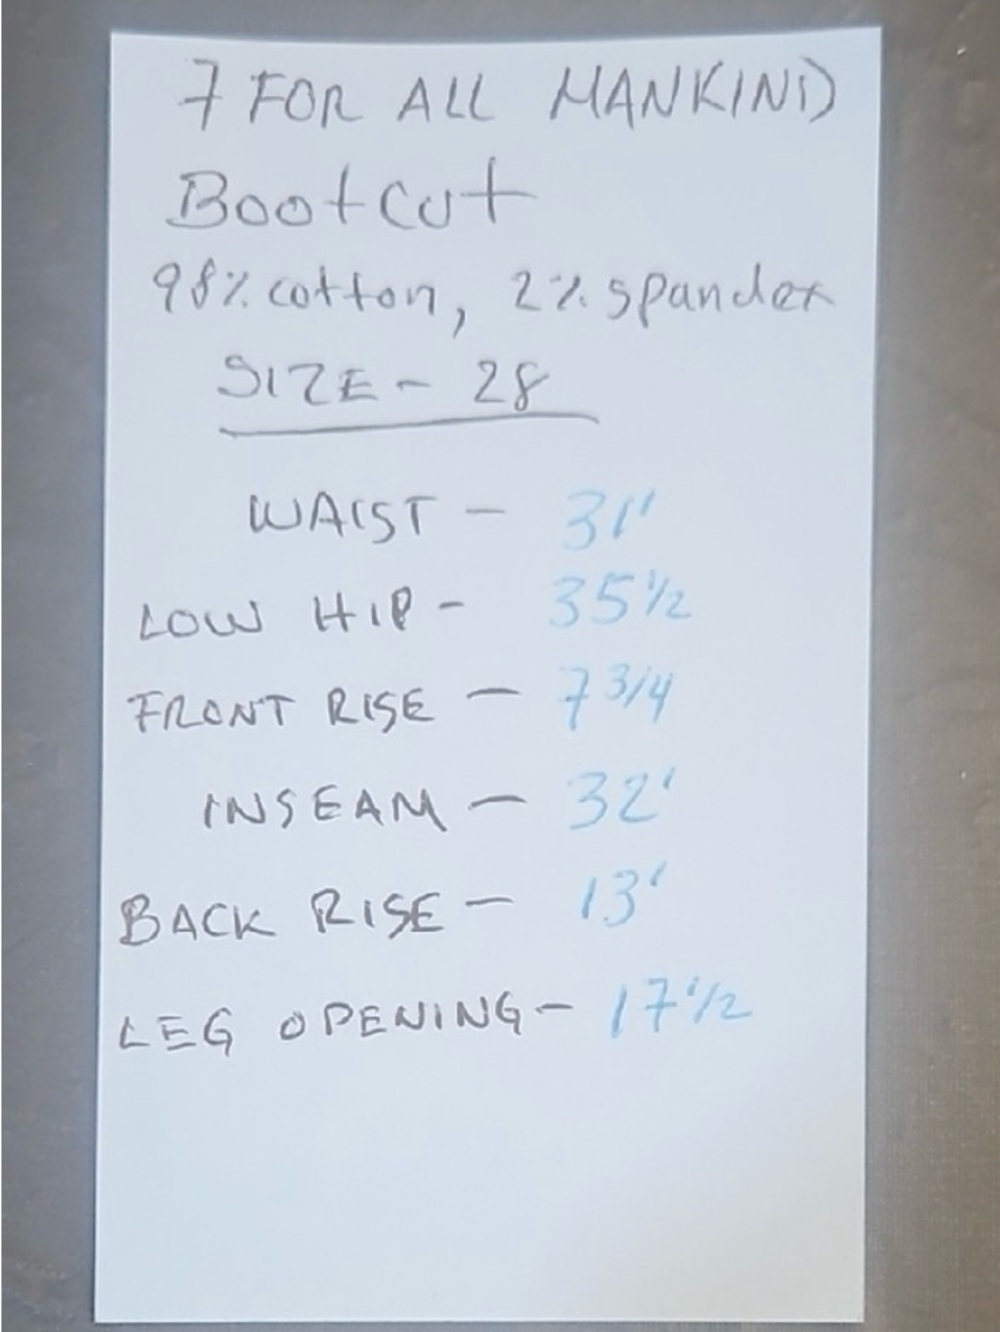 7 FOR ALL MANKIND
Bootcut
98% cotton, 2% spandex
SIZE - 28
WAIST - 31"
LOW HIP - 35 1/2
FRONT RISE - 7 3/4
INSEAM - 32'
BACK RISE - 13'
LEG OPENING - 17 1/2